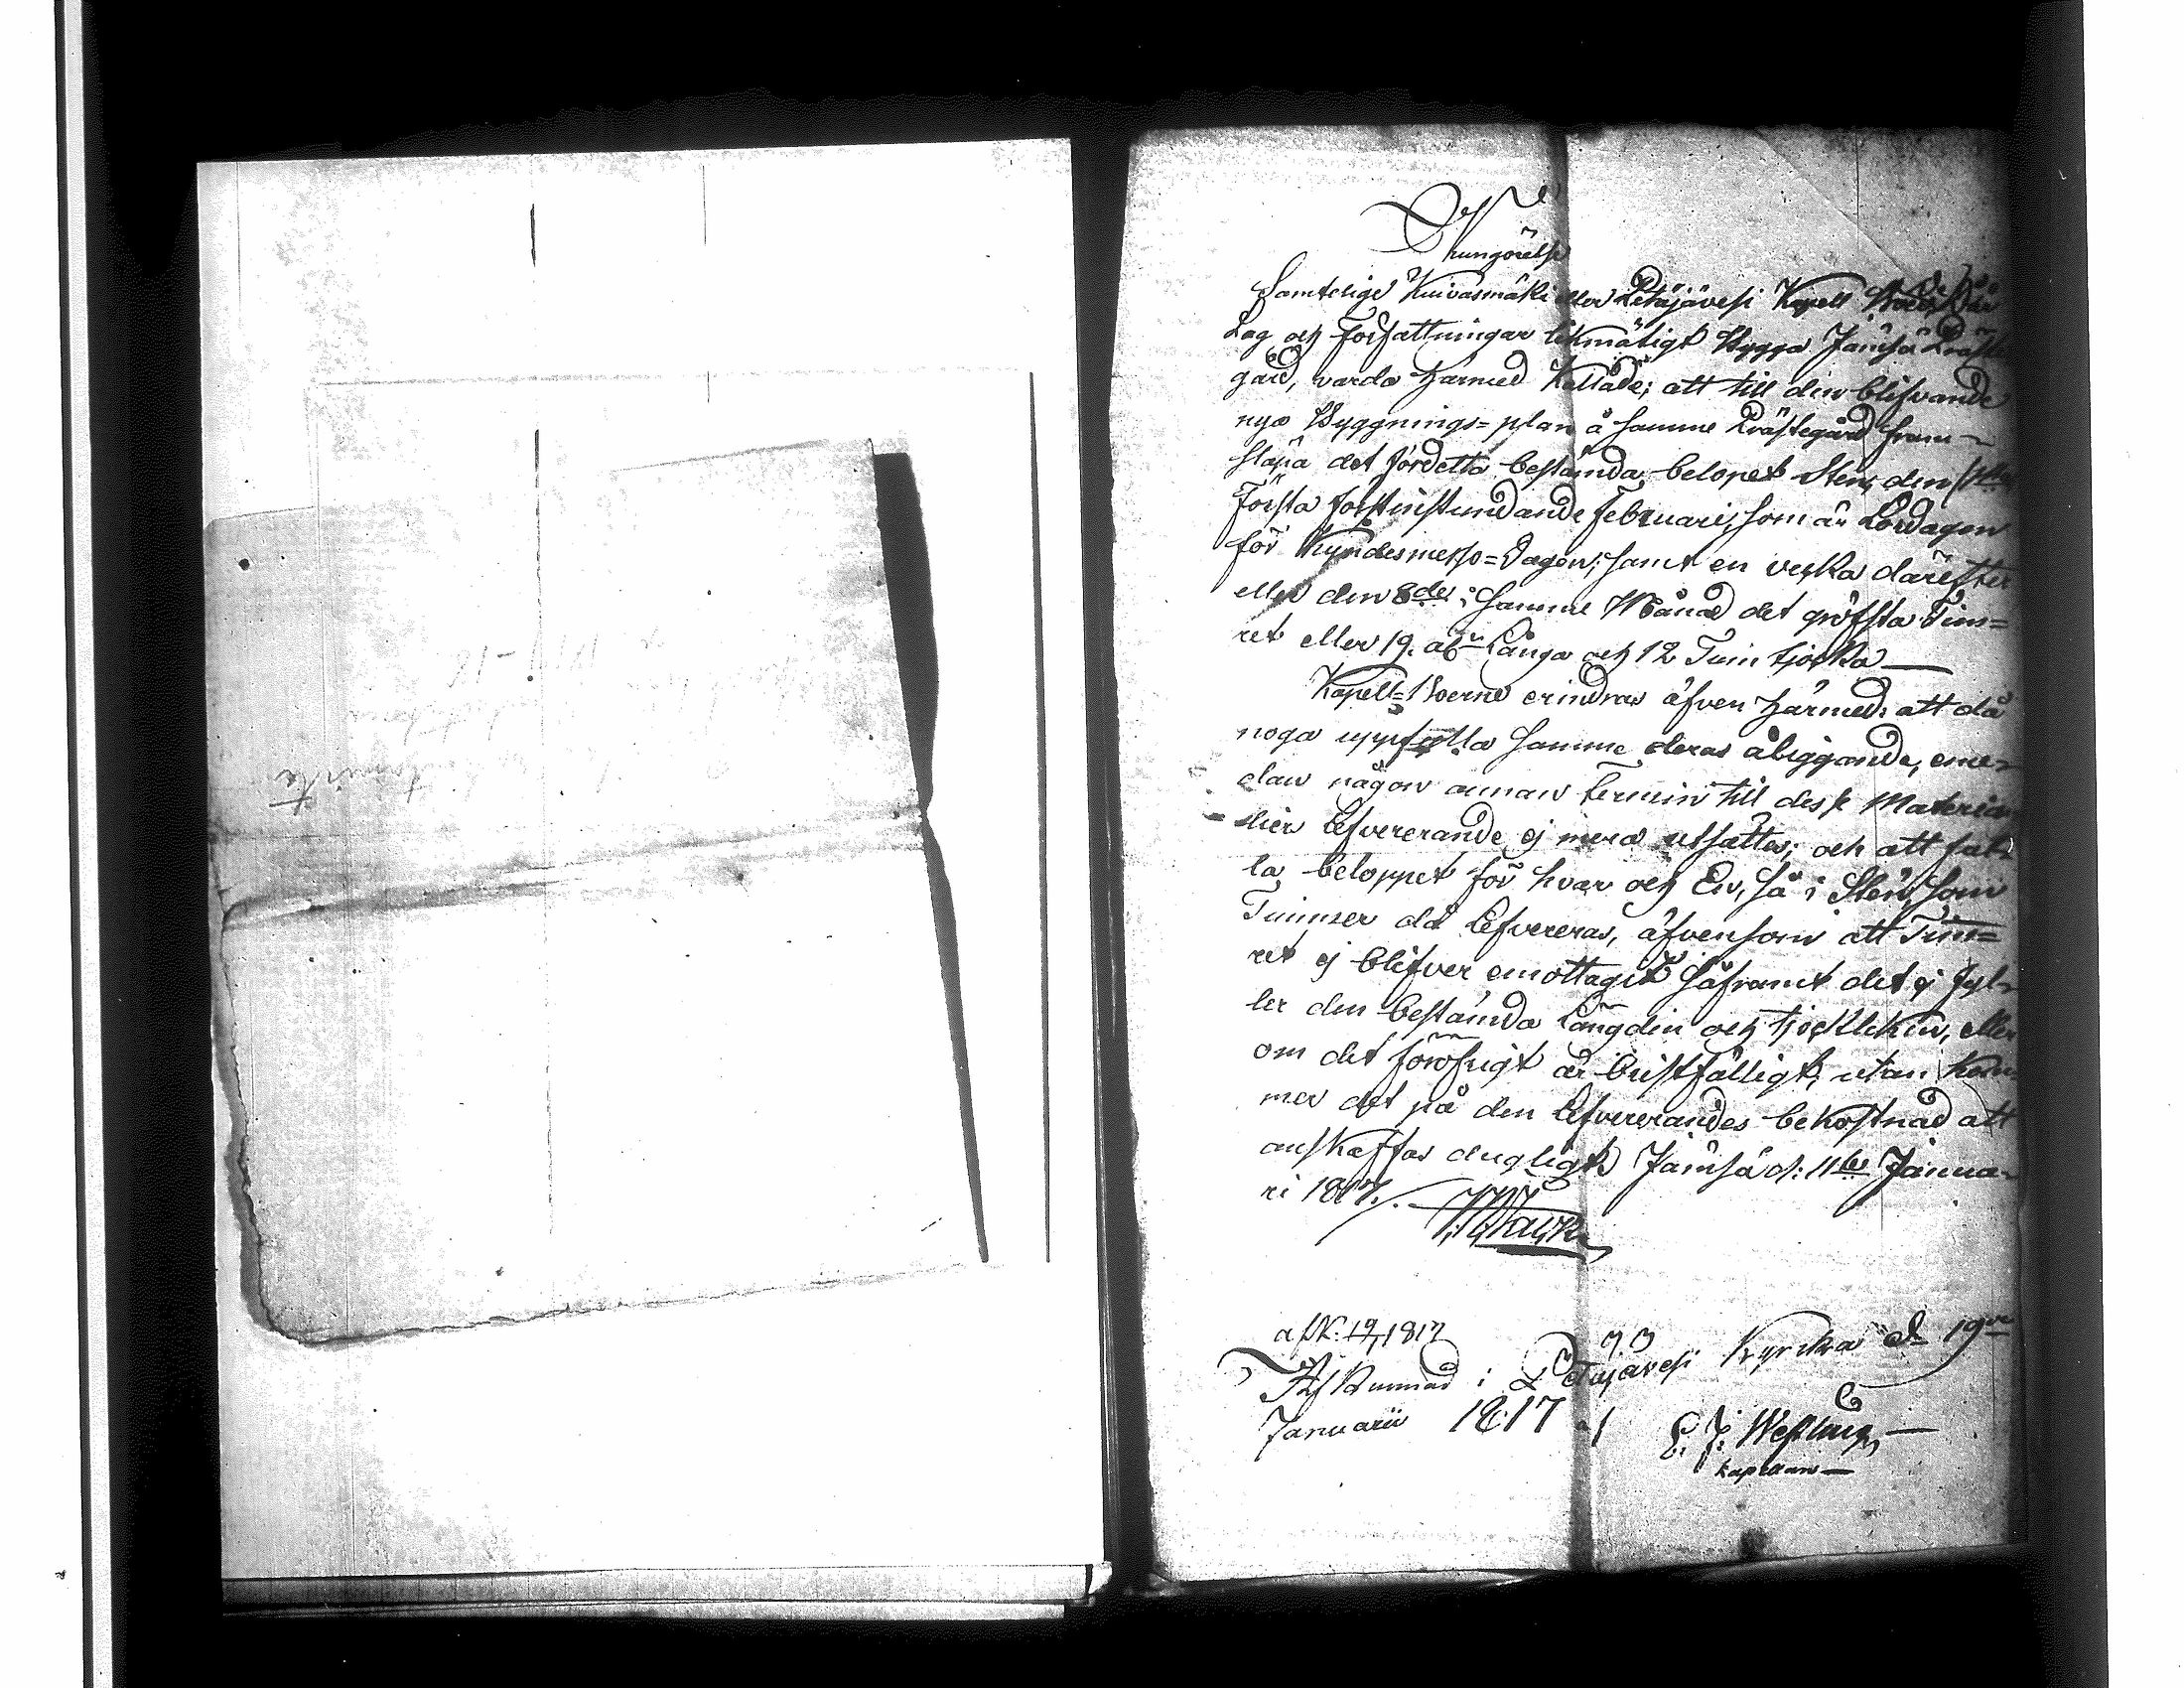 Kungörelse
Samtelige Kuivasmäki eller Petäjävesi Kapell Boer,
Lag och Författningar likmätigt bygga Jämsä Präste
gård, varda härmed Kallade; att till den blifvande
nya Byggnings=plan å samme Prästegård fram-
släpa det fördetta bestämda belopet Sten, den
Första förstinstundande Februarii, som är Lördagen
för Kyndesmesso=Dagen; samt en vecka därefter
eller den 8de i samme Månad det gröfsta Tim=
ret eller 19. aln Långa och 12 Tum tjocka
Kapell=Boerne erindras äfven härmed: att då
noga uppfylla samme deras åliggande, eme-
dan någon annan termin till dess Materia
lier lefvererande ej mera utsättes; och att ful-
la beloppet för hvar och En, så i Sten, som
Timmer då lefvereras, äfvensom att Tim=
ret ej blifver emottagit såframt det ej fyl-
ler den bestämda Längden och tjockleken, eller
om det föröfrigt är bristfälligt, utan kom-
mer det på den lefvererandes bekostnad att
anskaffas dugligt Jämsä d: 11te Janua-
ri 1817.
afk: 19/1 1817
Afkunnad i Petäjävesi Kyrcka d 19de
Januarii 1817 af E. J. Westling
Kapellan